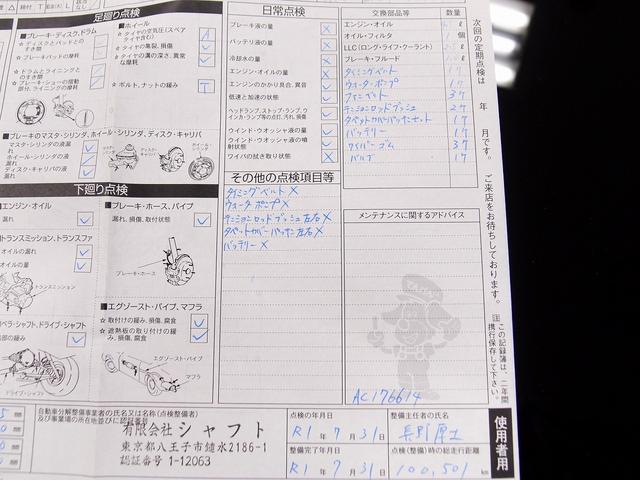 足廻り点検
■ブレーキ・ディスク、ドラム
☆ディスクとパッドとのすき間
☆ブレーキパッドの摩耗
☆ドラムとライニングとのすき間
☆ブレーキシューの摺動部分、ライニングの摩耗
■ホイール
☆タイヤの空気圧(スペアタイヤ含む)
☆タイヤの亀裂、損傷
☆タイヤの溝の深さ、異常な摩耗
☆ボルト、ナットの緩み T
■ブレーキのマスタ・シリンダ、ホイール・シリンダ、ディスク・キャリパ
マスタ・シリンダの液漏れ
ホイール・シリンダの液漏れ
ディスク・キャリパの液漏れ
下廻り点検
エンジン・オイル
漏れ
トランスミッション、トランスファ
オイルの漏れ
オイルの量
ペラ・シャフト、ドライブ・シャフト
部の緩み
ドライブ・シャフト
■ブレーキ・ホース、パイプ
漏れ、損傷、取付状態
ブレーキ・ホース
■エグゾースト・パイプ、マフラ
☆取付けの緩み、損傷、腐食
☆遮熱板の取り付けの緩み、損傷、腐食
エグゾースト・パイプ
マフラ
日常点検
ブレーキ液の量 ×
バッテリ液の量 ×
冷却水の量 ×
エンジン・オイルの量 ×
エンジンのかかり具合、異音
低速と加速の状態
ヘッドランプ、ストップ・ランプ、ウインカ・ランプ等の点灯、汚れ、損傷
ウインド・ウオッシャ液の量
ウインド・ウオッシャ液の噴射状態
ワイパの拭き取り状態
その他の点検項目等
タイミングベルト ×
ウォーターポンプ ×
テンションロッドブッシュ左右 ×
タペットカバーパッキン左右 ×
バッテリー ×
交換部品等 数量
エンジン・オイル ℓ
オイル・フィルタ 個
LLC(ロング・ライフ・クーラント) ℓ
ブレーキ・フルード ℓ
タイミングベルト
ウォーターポンプ
ファンベルト
テンションロッドブッシュ
タペットカバーパッキンセット
バッテリー
ワイパーゴム
バルブ
メンテナンスに関するアドバイス
AC176614
次回の定期点検は 年 月です。 ご来店をお待ちしております。
注 この記録簿は、二年間携行保存して下さい。
使用者用
自動車分解整備事業者の氏名又は名称(点検整備者)及び事業場の所在地並びに認証番号
有限会社シャフト
東京都八王子市鑓水2186-1
認証番号 1-12063
点検の年月日
R1年 7月 31日
整備完了年月日
R1年 7月 31日
整備主任者の氏名
点検(整備)時の総走行距離
100,501 km